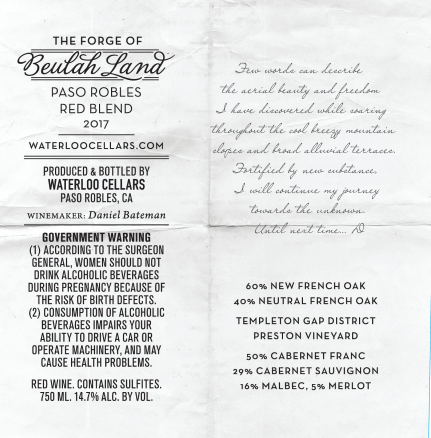 THE FORGE OF
Beulah Land
PASO ROBLES
RED BLEND
2017
WATERLOOCELLARS.COM
PRODUCED & BOTTLED BY
WATERLOO CELLARS
PASO ROBLES, CA
WINEMAKER: Daniel Bateman
GOVERNMENT WARNING
(1) ACCORDING TO THE SURGEON
GENERAL, WOMEN SHOULD NOT
DRINK ALCOHOLIC BEVERAGES
DURING PREGNANCY BECAUSE OF
THE RISK OF BIRTH DEFECTS.
(2) CONSUMPTION OF ALCOHOLIC
BEVERAGES IMPAIRS YOUR
ABILITY TO DRIVE A CAR OR
OPERATE MACHINERY, AND MAY
CAUSE HEALTH PROBLEMS.
RED WINE. CONTAINS SULFITES.
750 ML. 14.7% ALC. BY VOL.
Few words can describe
the aerial beauty and freedom
I have discovered while soaring
throughout the cool breezy mountain
slopes and broad alluvial terraces.
Fortified by new substance.
I will continue my journey
towards the unknown.
Until next time...
60% NEW FRENCH OAK
40% NEUTRAL FRENCH OAK
TEMPLETON GAP DISTRICT
PRESTON VINEYARD
50% CABERNET FRANC
29% CABERNET SAUVIGNON
16% MALBEC, 5% MERLOT